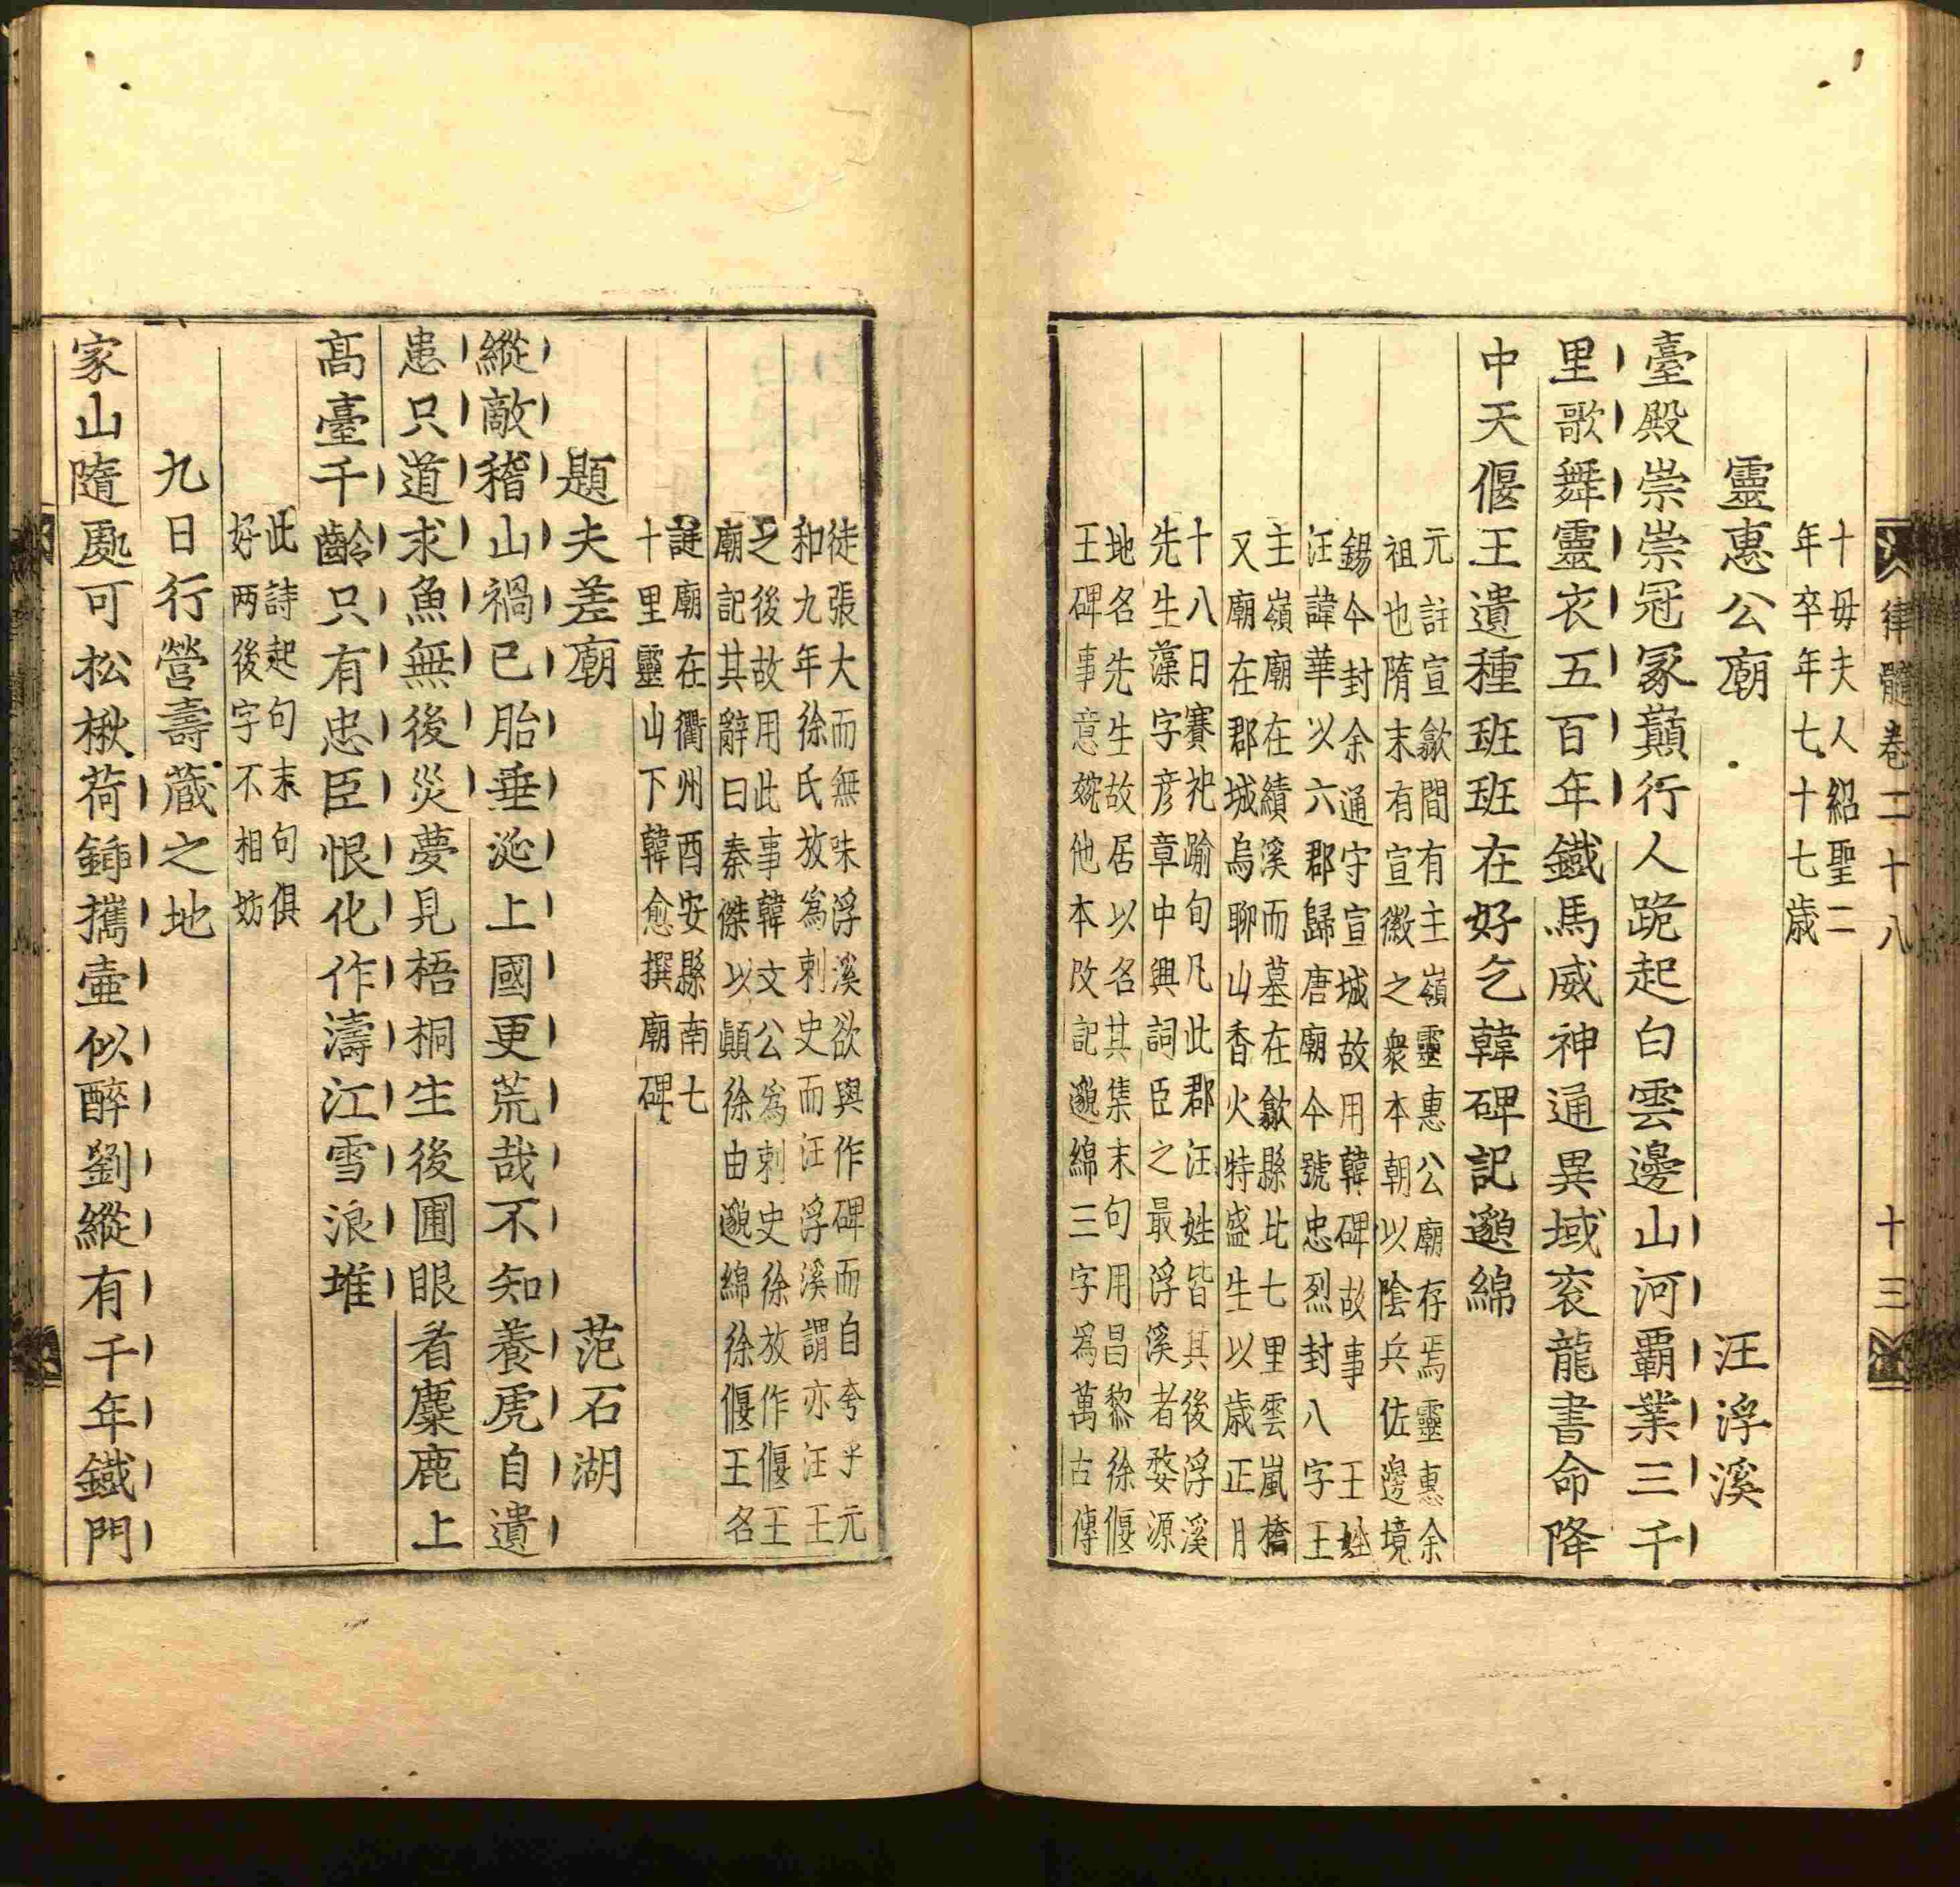 律髓卷二十八 十三
十母夫人紹聖二
年卒年七十七歲
靈惠公廟 汪浮溪
臺殿崇崇冠冢巔行人跪起白雲邊山河覇業三千
里歌舞靈衣五百年鐵馬威神通異域衮龍書命降
中天偃王遺種班班在好乞韓碑記邈綿
元註宣歙間有主嶺靈惠公廟存焉靈惠余
祖也隋末有宣徽之衆本朝以陰兵佐邊境
錫今封余通守宣城故用韓碑故事 王姓
汪諱華以六郡歸唐廟今號忠烈封八字王
主嶺廟在績溪而墓在歙縣北七里雲嵐橋
又廟在郡城烏聊山香火特盛生以歲正月
十八日賽祀踰旬凡此郡汪姓皆其後浮溪
先生藻字彦章中興詞臣之最浮溪者婺源
地名先生故居以名其集末句用昌黎徐偃
王碑事意婉他本改記邈綿三字爲萬古傳
徒張大而無味浮溪欲與作碑而自夸乎元
和九年徐氏放爲刺史而汪浮溪謂亦汪王
之後故用此事韓文公爲刺史徐放作偃王
廟記其辭曰秦傑以顛徐由邈綿徐偃王名
誕廟在衢州酉安縣南七
十里靈山下韓愈撰廟碑
題夫差廟 范石湖
縱敵稽山禍已胎垂涎上國更荒哉不知養虎自遺
患只道求魚無後災夢見梧桐生後圃眼看麋鹿上
高臺千齡只有忠臣恨化作濤江雪浪堆
此詩起句末句俱
好两後字不相妨
九日行營壽藏之地
家山隨處可松楸荷鍤攜壷似醉劉縱有千年鐵門